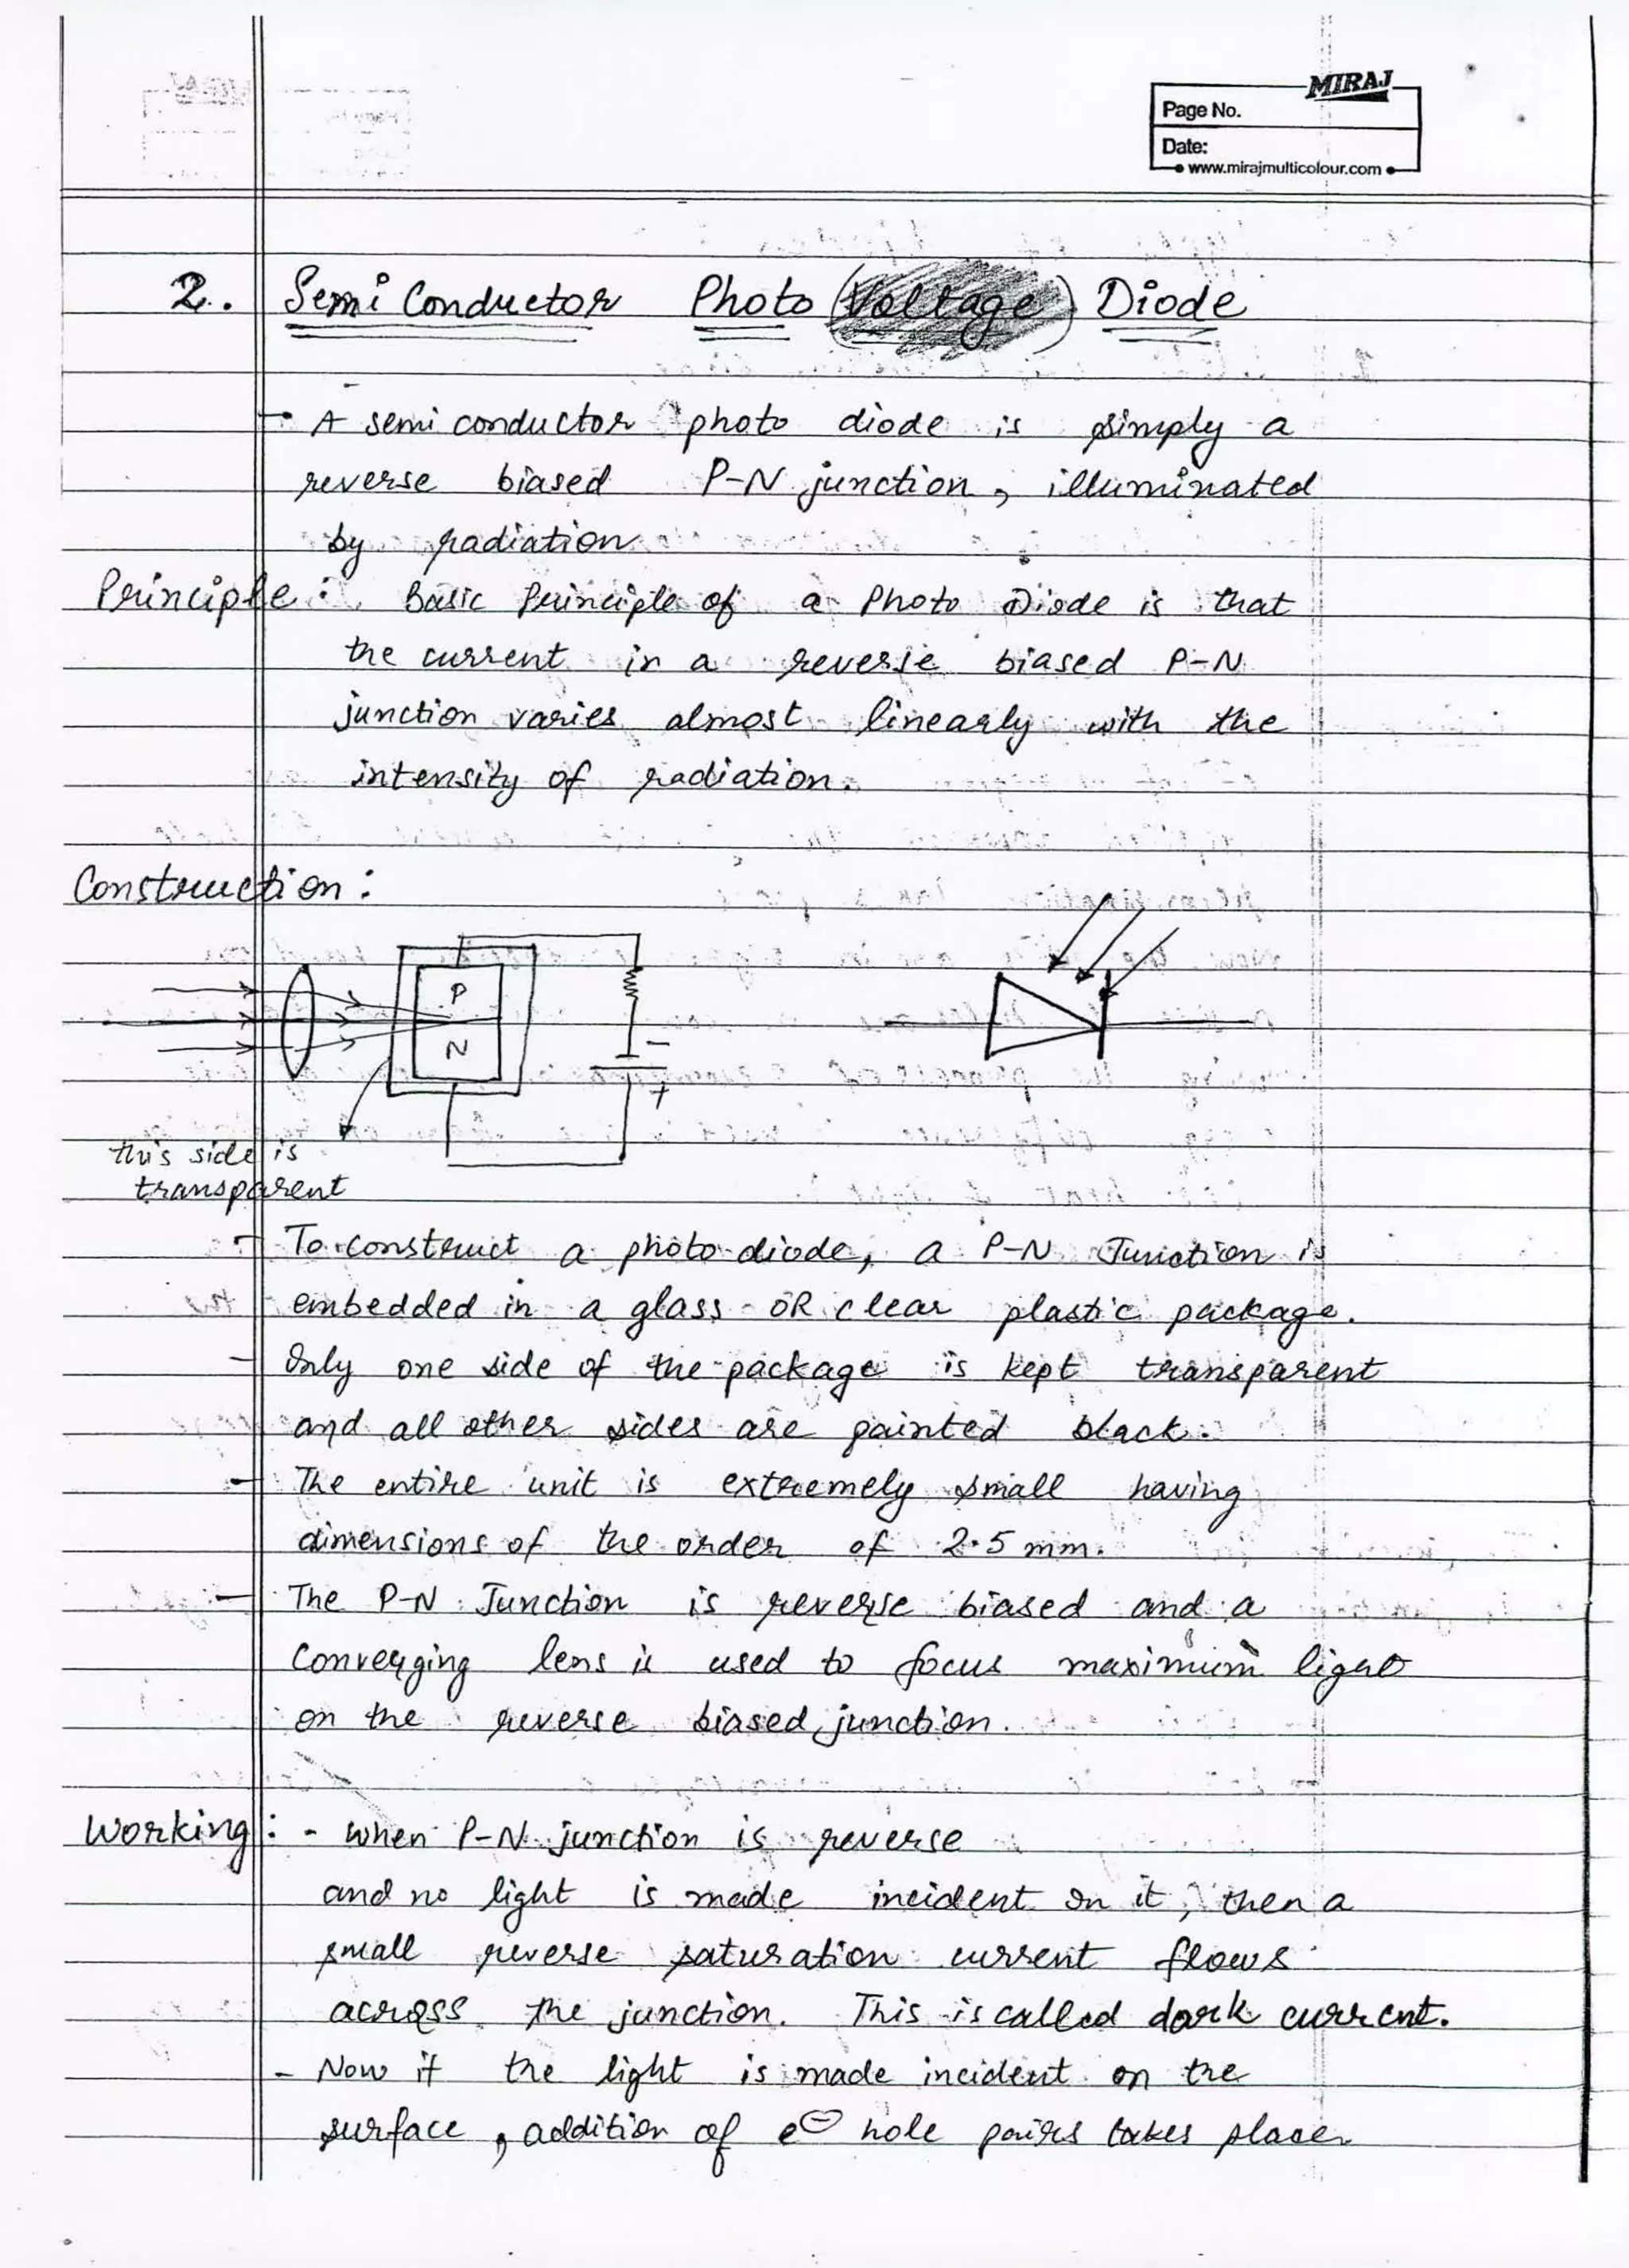 MIRAJ
Page No.
Date:
www.mirajmulticolour.com
2. Semi Conductor Photo (Voltage) Diode
- A semi conductor photo diode is simply a
reverse biased P-N junction, illuminated
by radiation
Principle: Basic Principle of a Photo Diode is that
the current in a reverse biased P-N
junction varies almost linearly with the
intensity of radiation.
Construction:
P
N
-
+
this side is
transparent
- To construct a photo diode, a P-N Junction is
embedded in a glass OR clear plastic package.
- Only one side of the package is kept transparent
and all other sides are painted black.
- The entire unit is extremely small having
dimensions of the order of 2.5 mm.
- The P-N Junction is reverse biased and a
converging lens is used to focus maximum light
on the reverse biased junction.
Working: - when P-N junction is reverse
and no light is made incident on it, then a
small reverse saturation current flows
across the junction. This is called dark current.
- Now if the light is made incident on the
surface, addition of e⊖ hole pairs takes place